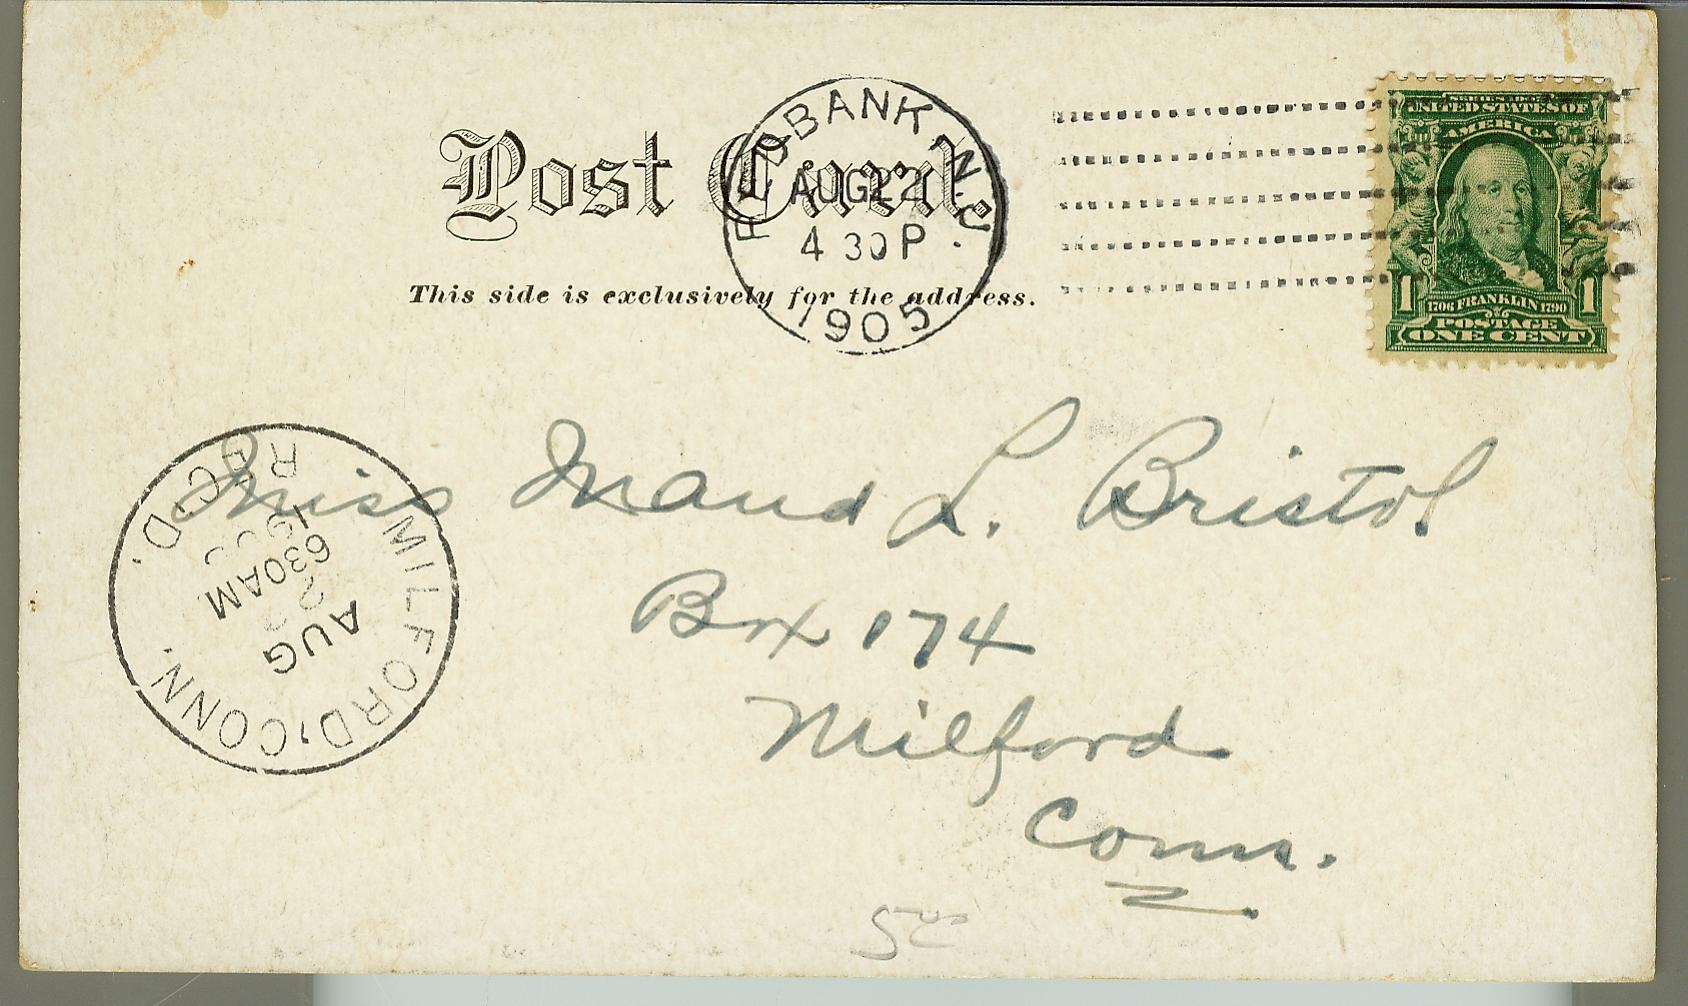 Post Card.
This side is exclusively for the address.
RED BANK N.J.
4 30 P
1905
UNITED STATES OF
AMERICA
1706 FRANKLIN 1790
1 1
POSTAGE
ONE CENT
Miss Maud L. Bristol
Box 174
Milford
Conn.
MILFORD, CONN.
AUG
630AM
REC'D.